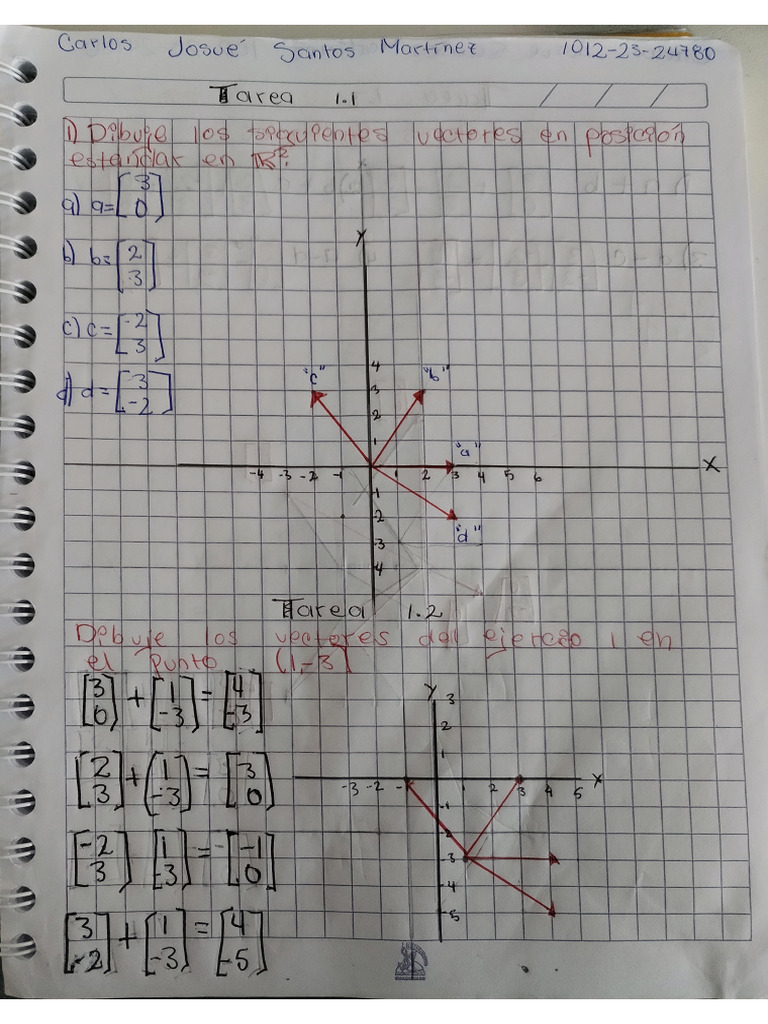 Carlos Josué Santos Martínez 1012-23-24780
Tarea 1.1
1) Dibuje los siguientes vectores en posición
estandar en R².
a) a=[3
0]
b) b=[2
3]
c) c=[-2
3]
d) d=[-3
-2]
Y
4
3
2
1
"c" "b" "a" "d"
-4 -3 -2 -1 1 2 3 4 5 6 X
1
-2
-3
4
Tarea 1.2
Dibuje los vectores del ejercicio 1 en
el punto (1,-3]
[3 0] + [1 -3] = [4 -3]
[2 3] + [1 -3] = [3 0]
[-2 3] [1 -3] = [-1 0]
[3 -2] + [1 -3] = [4 -5]
Y 3
2
1
-3 -2 -1 1 2 3 4 5 X
-1
-2
-3
-4
-5